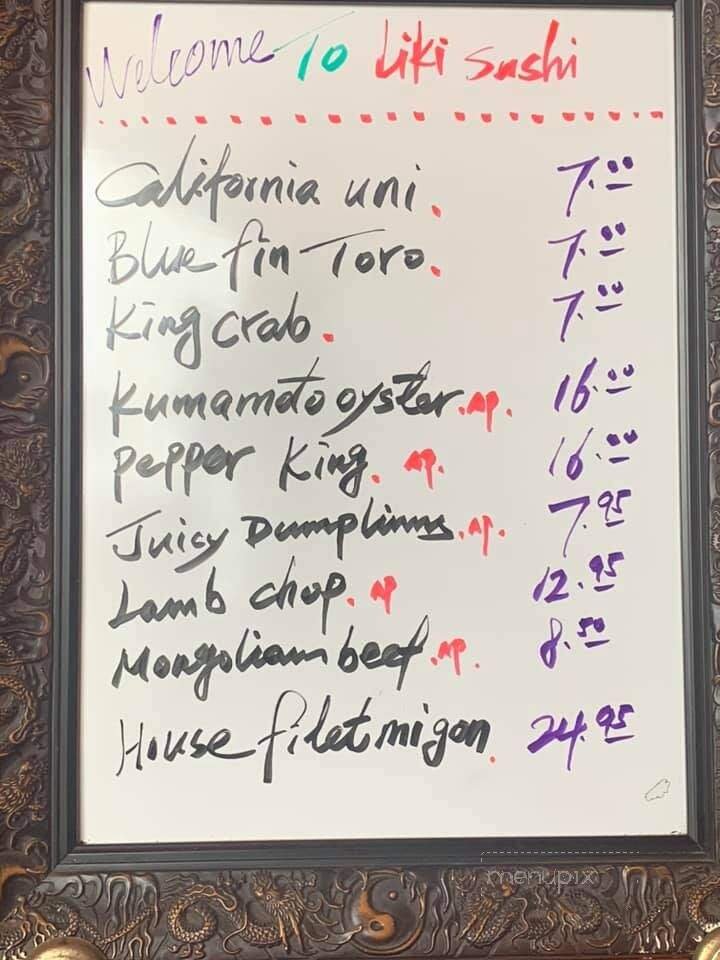 Welcome To Liki Sushi
California uni. 7.00
Blue fin Toro. 7.00
King crab. 7.00
Kumamoto oyster. AP. 16.00
pepper King. AP. 16.00
Juicy Dumplinns. AP. 7.95
Lamb chop. AP 12.95
Mongoliam beef. AP. 8.50
House filet migon. 24.95
menupix